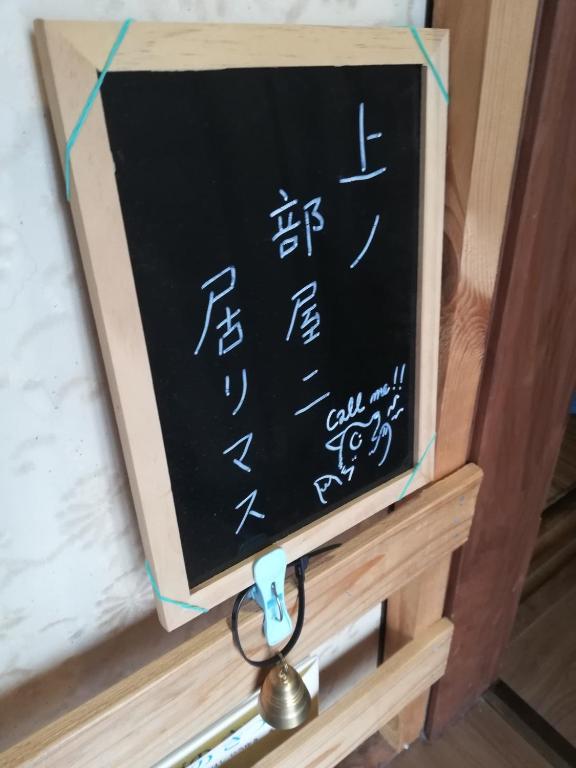 上ノ
部屋ニ
居リマス
Call me!!